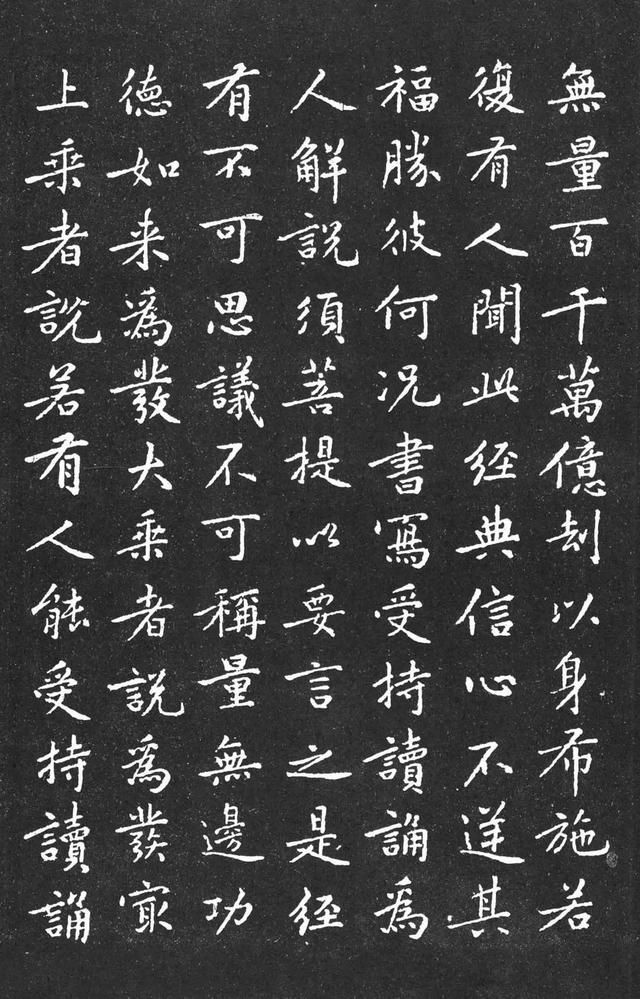 無量百千萬億刧以身布施若
復有人聞此經典信心不逆其
福勝彼何況書寫受持讀誦爲
人解說須菩提以要言之是經
有不可思議不可稱量無邊功
德如来爲發大乘者說爲發冣
上乘者說若有人能受持讀誦